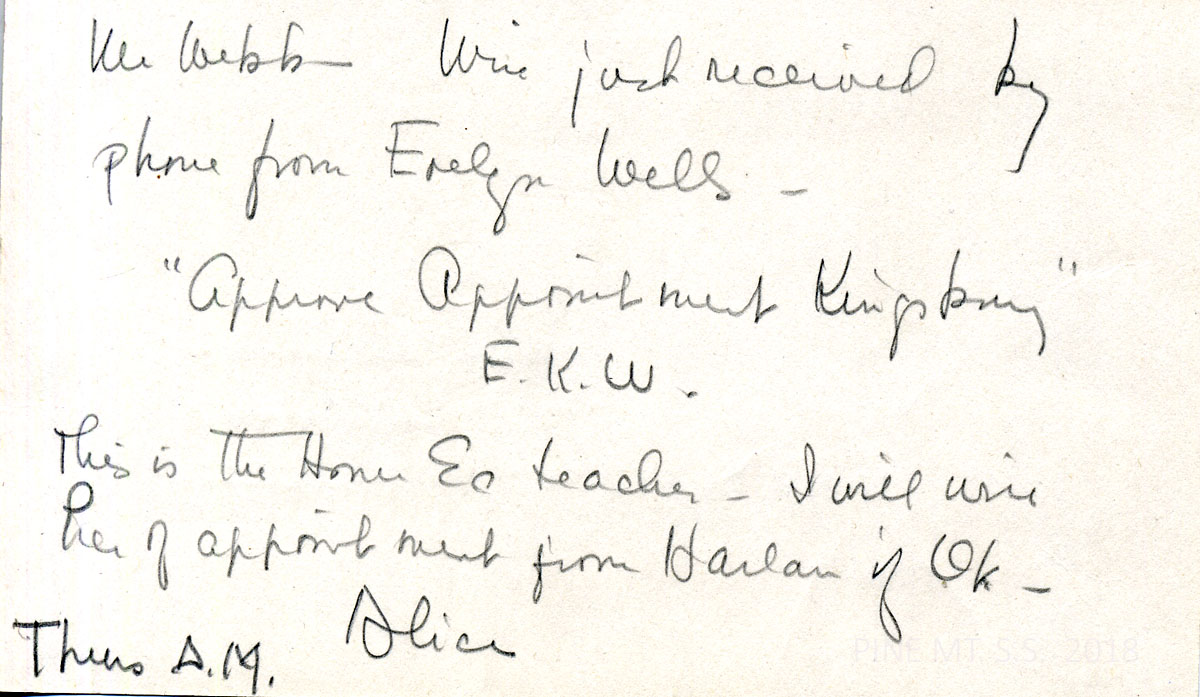 Mr Webb— Wire just received by
phone from Evelyn Wells –
"Approve Appointment Kingsbury"
E.K.W.
This is the Home Ec teacher – I will wire
her of appointment from Harlan if Ok –
Alice
Thurs A.M.
PINE MT. S.S. 2018